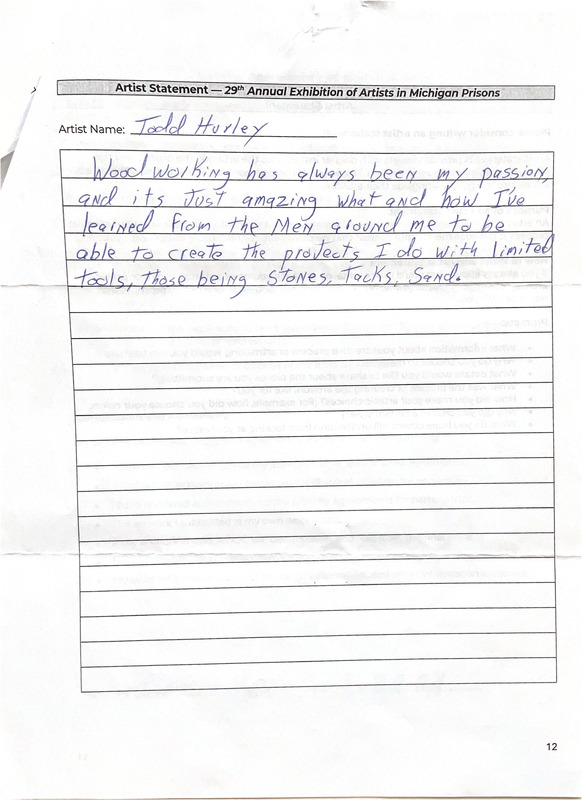 Artist Statement — 29th Annual Exhibition of Artists in Michigan Prisons
Artist Name: Todd Hurley
Wood working has always been my passion,
and its Just amazing what and how I've
learned from the Men around me to be
able to create the projects I do with limited
tools, those being Stones, Tacks, Sand.
12